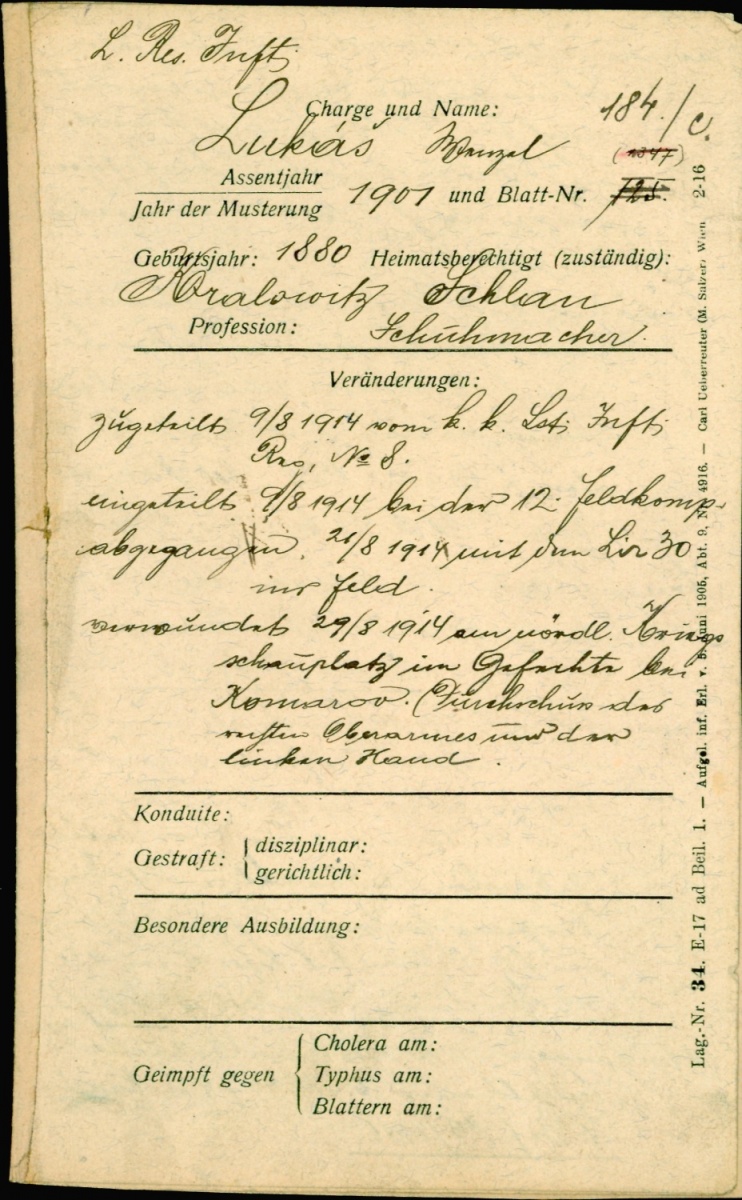 L. Res. Inft.
Charge und Name:
184./C.
Lukáš Wenzel
(1347)
Assentjahr
Jahr der Musterung 1901 und Blatt-Nr. 125.
Geburtsjahr: 1880 Heimatsberechtigt (zuständig):
Kralowitz Schlan
Profession: Schuhmacher.
Veränderungen:
zugeteilt 9/8 1914 vom k. k. Lst. Inft.
Reg. No 8.
eingeteilt 9/8 1914 bei der 12. Feldkomp.
abgegangen 21/8 1914 mit dem Lir 30
ins Feld.
verwundet 29/8 1914 am nördl. Kriegs
schauplatz im Gefechte bei
Komarov. (Durchschuss des
rechten Oberarmes und der
linken Hand.
Konduite:
Gestraft: { disziplinar:
gerichtlich:
Besondere Ausbildung:
Geimpft gegen { Cholera am:
Typhus am:
Blattern am:
Lag.-Nr. 34. E-17 ad Beil. 1. — Aufgel. inf. Erl. v. 5. Juni 1905, Abt. 9, Nr. 4916. — Carl Ueberreuter (M. Salzer) Wien 2-16